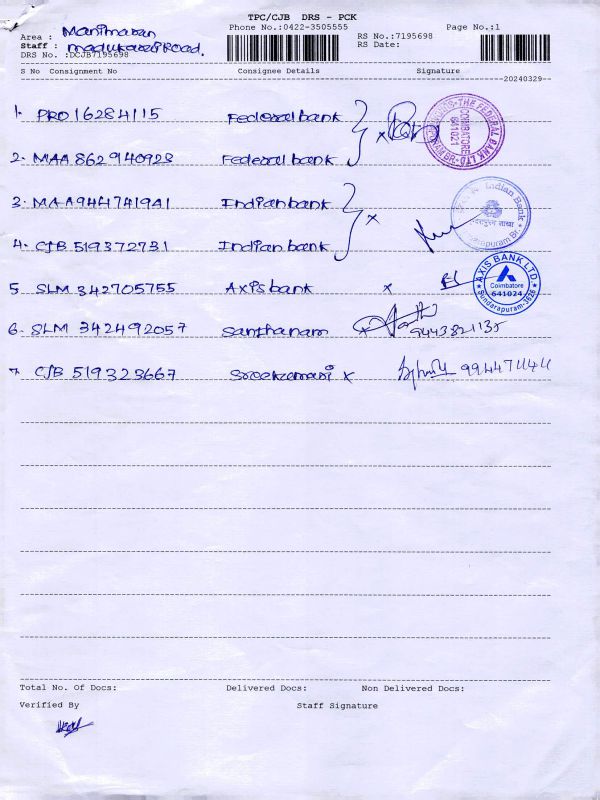 TPC/CJB DRS - PCK
Phone No.:0422-3505555 Page No.:1
Area : Manimaran
Staff : madukarai Road.
RS No.:7195698
RS Date:
DRS No. :DCJB7195698
S No Consignment No Consignee Details Signature
20240329
1. PRO16284115 Federal bank
2. MAA862940928 Federal bank
THE FEDERAL BANK LTD
COIMBATORE
641021
3. MAA944741941 Indian bank
4. CJB 519372731 Indian bank
Indian Bank
5 SLM 342705755 Axis bank
AXIS BANK LTD.
Coimbatore
641024
Sundarapuram-3626
6. SLM 342492057 Santhanam
7. CJB 519323667 Sreekumari
Total No. Of Docs: Delivered Docs: Non Delivered Docs:
Verified By Staff Signature